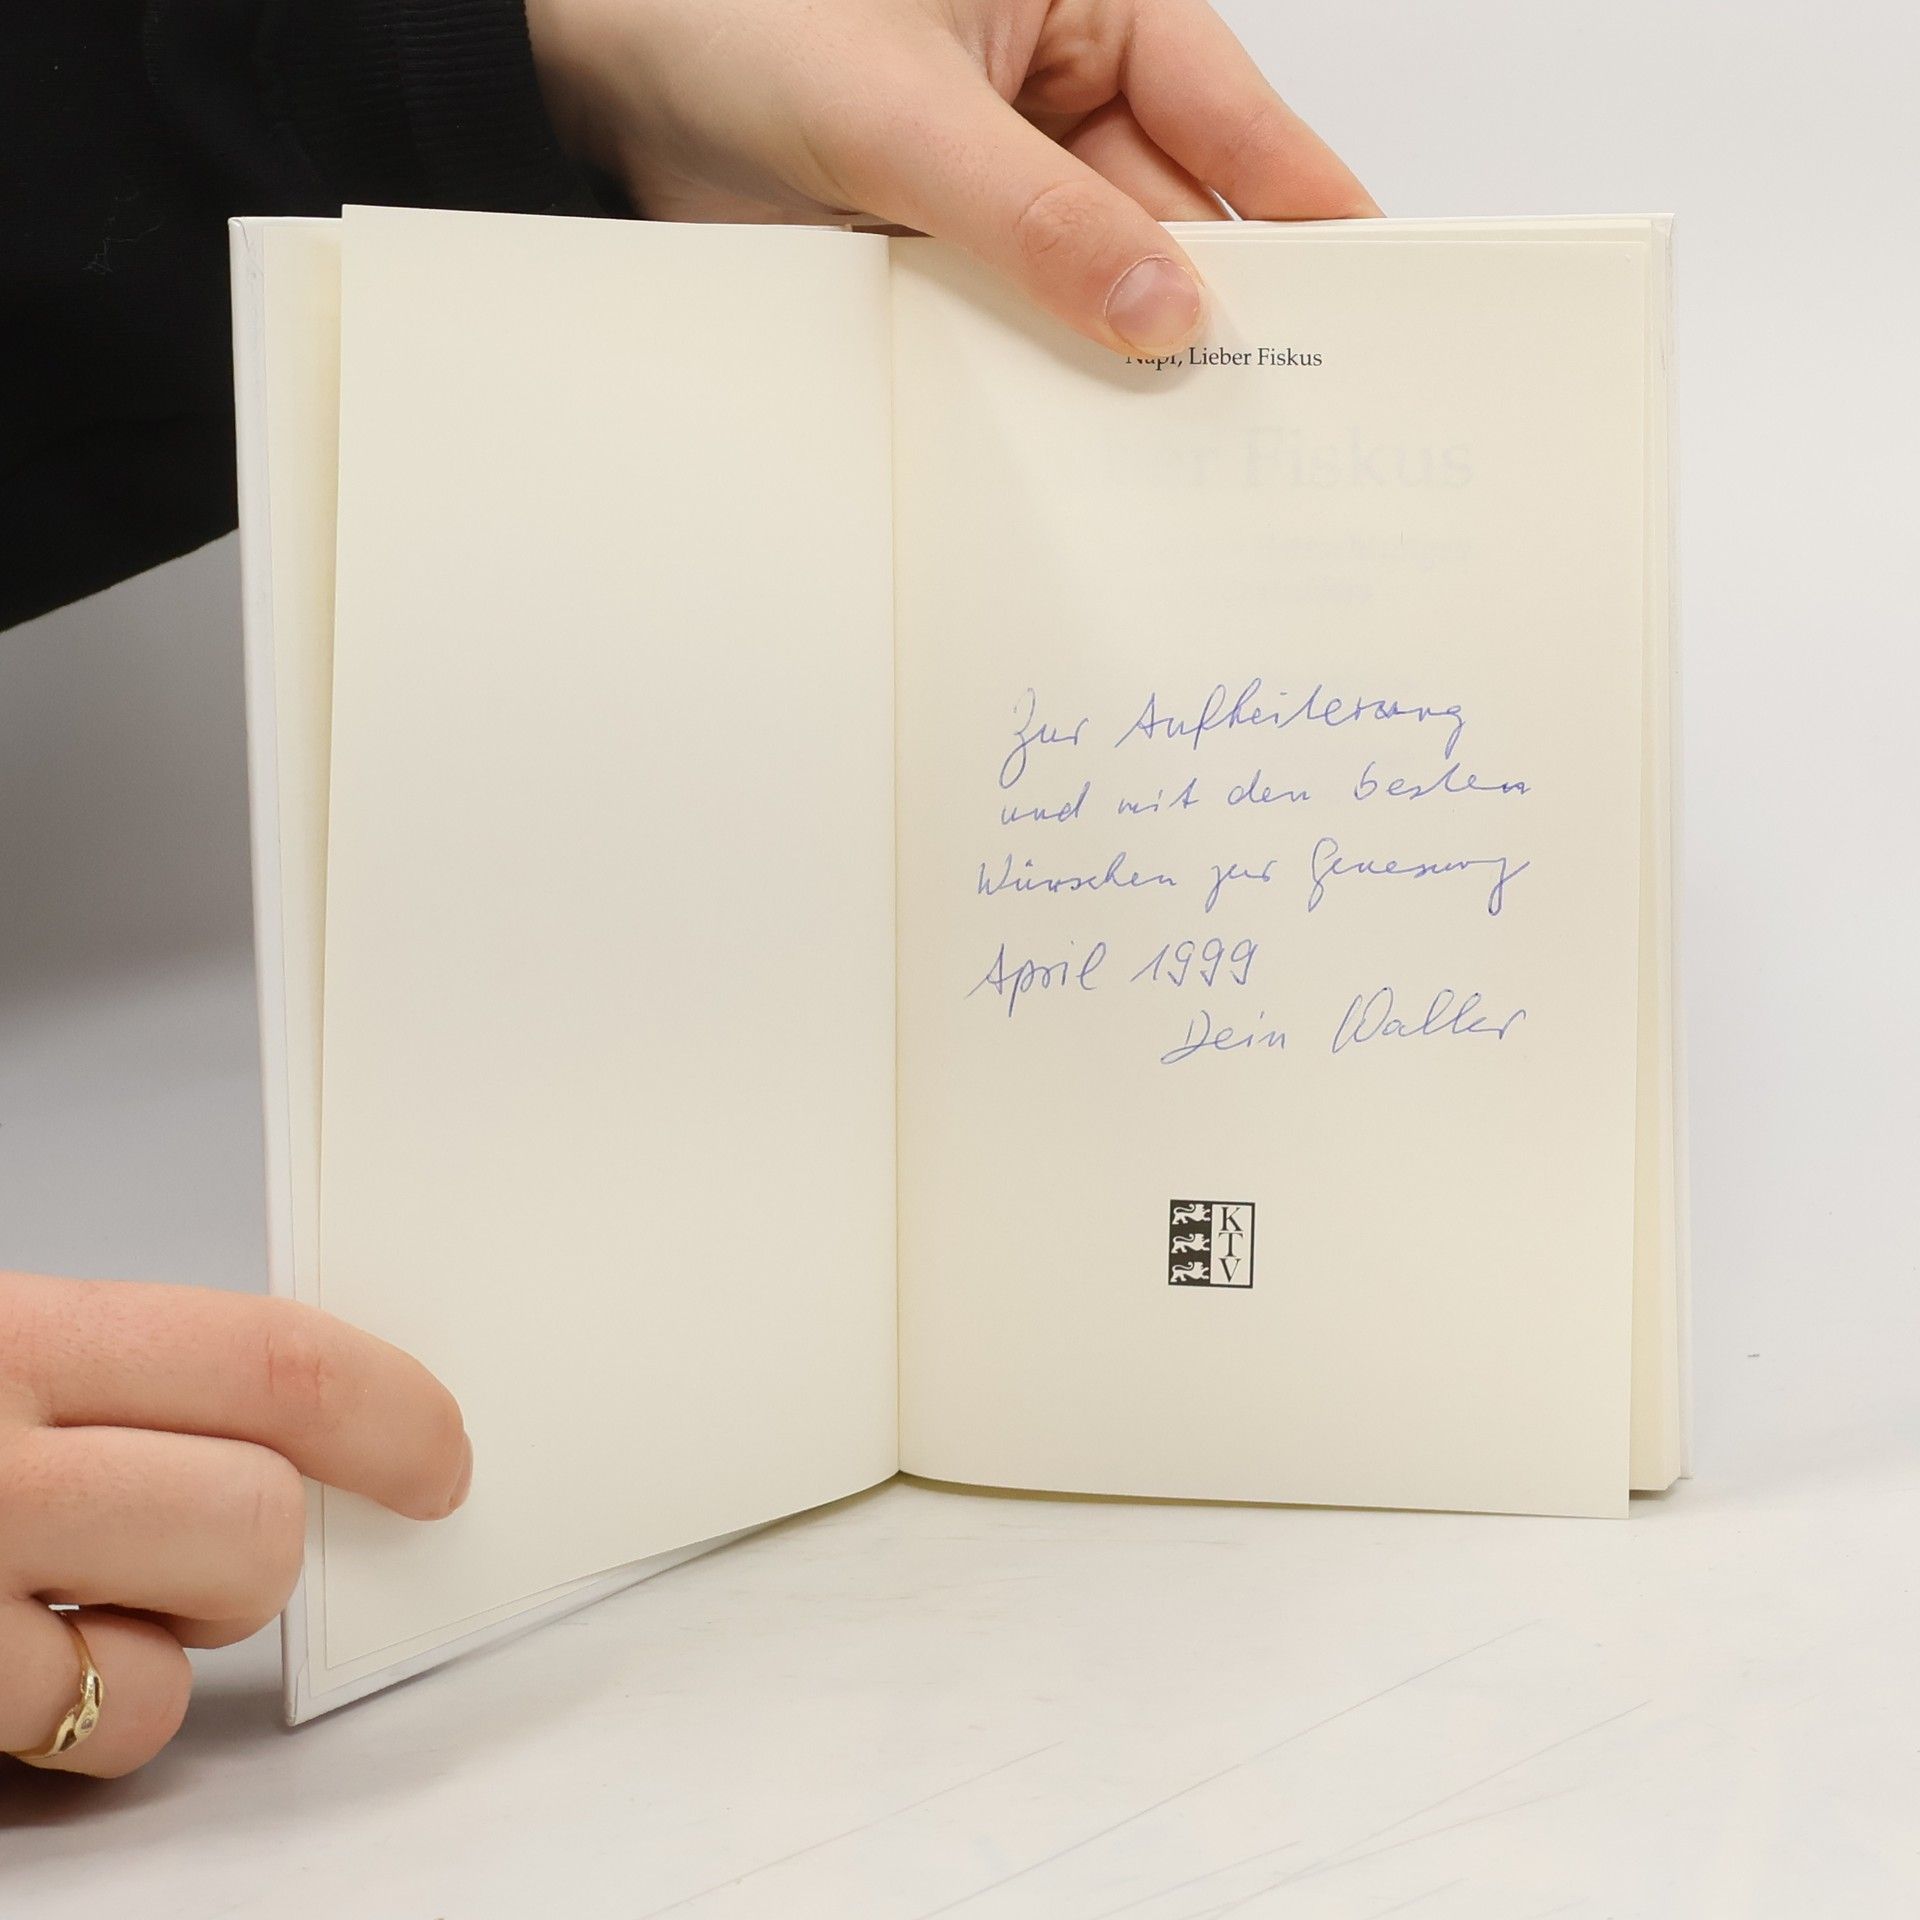 Napf, Lieber Fiskus
Fiskus
Zur Aufheiterung
und mit den besten
Wünschen zur Genesung
April 1999
Dein Walter
K
T
V